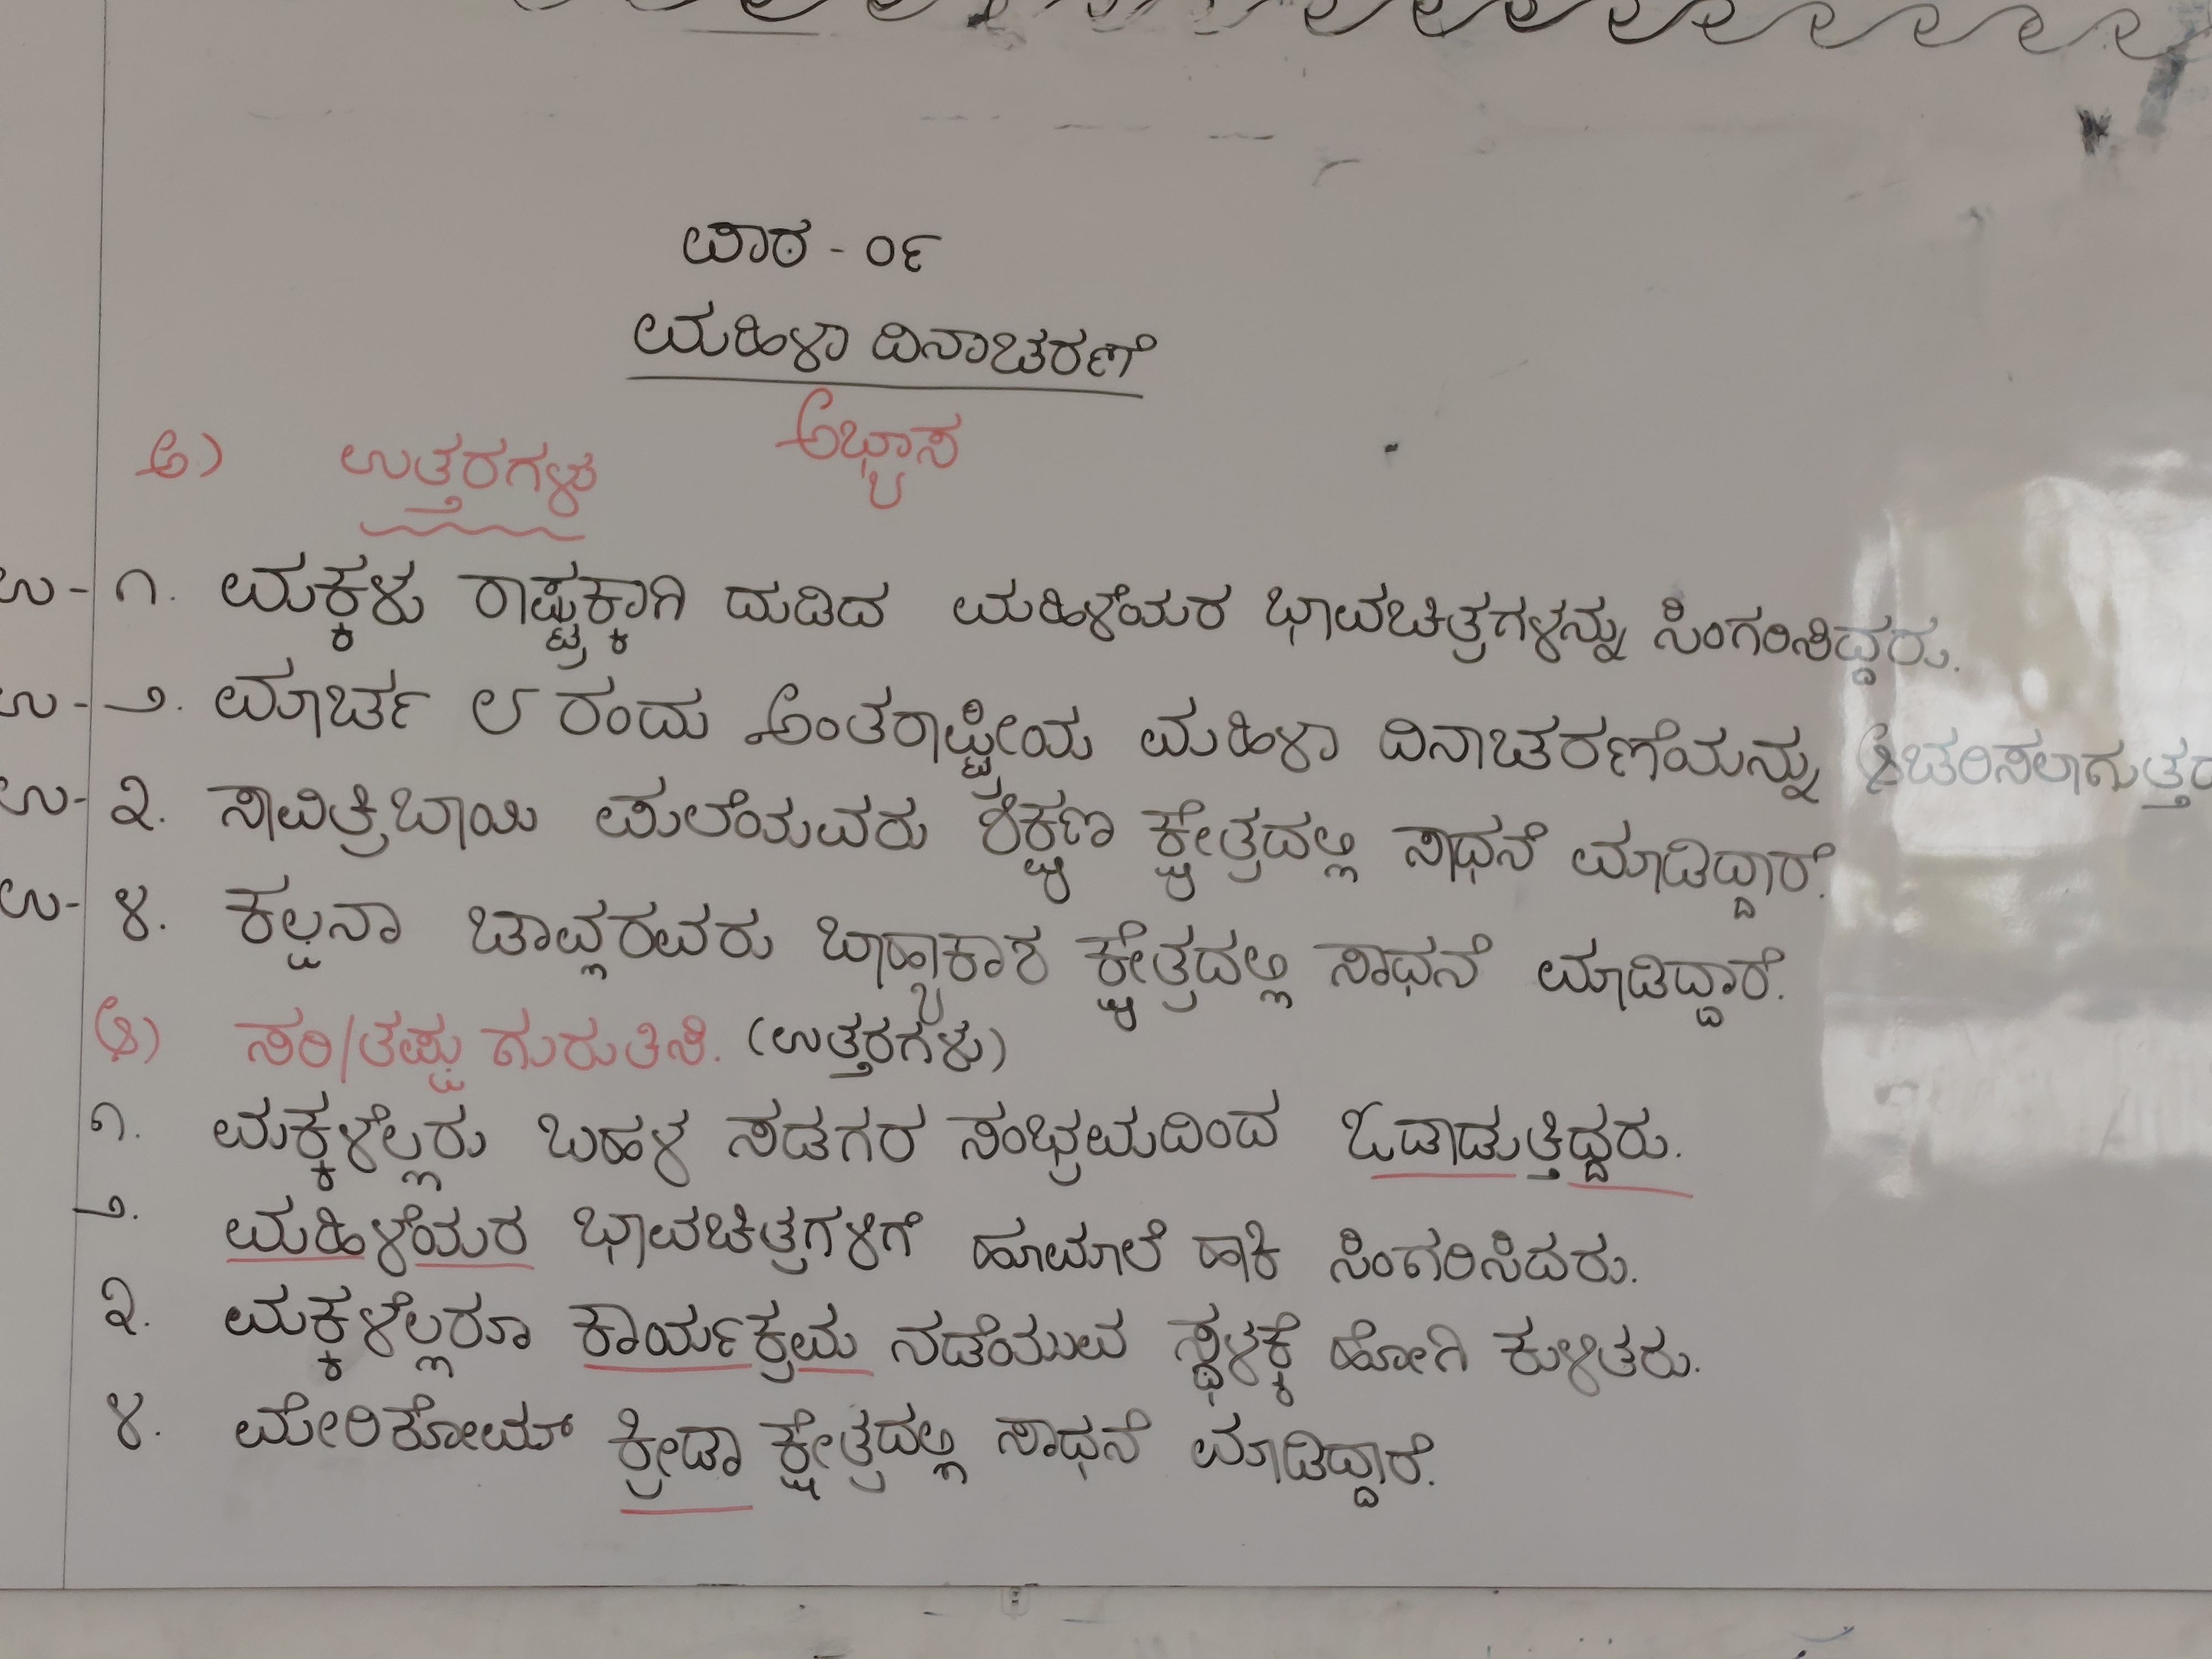 ಪಾಠ - ೦೯
ಮಹಿಳಾ ದಿನಾಚರಣೆ
ಅಭ್ಯಾಸ
ಅ) ಉತ್ತರಗಳು
ಉ- ೧. ಮಕ್ಕಳು ರಾಷ್ಟ್ರಕ್ಕಾಗಿ ದುಡಿದ ಮಹಿಳೆಯರ ಭಾವಚಿತ್ರಗಳನ್ನು ಸಿಂಗರಿಸಿದ್ದರು.
ಉ- ೨. ಮಾರ್ಚ ೮ ರಂದು ಅಂತರಾಷ್ಟ್ರೀಯ ಮಹಿಳಾ ದಿನಾಚರಣೆಯನ್ನು
ಉ- ೩. ಸಾವಿತ್ರಿಬಾಯಿ ಪುಲೆಯವರು ಶಿಕ್ಷಣ ಕ್ಷೇತ್ರದಲ್ಲಿ ಸಾಧನೆ ಮಾಡಿದ್ದಾರೆ.
ಉ- ೪. ಕಲ್ಪನಾ ಚಾವ್ಲರವರು ಬಾಹ್ಯಾಕಾಶ ಕ್ಷೇತ್ರದಲ್ಲಿ ಸಾಧನೆ ಮಾಡಿದ್ದಾರೆ.
ಆ) ಸರಿ/ತಪ್ಪು ಗುರುತಿಸಿ. (ಉತ್ತರಗಳು)
೧. ಮಕ್ಕಳೆಲ್ಲರು ಬಹಳ ಸಡಗರ ಸಂಭ್ರಮದಿಂದ ಓಡಾಡುತ್ತಿದ್ದರು.
೨. ಮಹಿಳೆಯರ ಭಾವಚಿತ್ರಗಳಿಗೆ ಹೂಮಾಲೆ ಹಾಕಿ ಸಿಂಗರಿಸಿದರು.
೩. ಮಕ್ಕಳೆಲ್ಲರೂ ಕಾರ್ಯಕ್ರಮ ನಡೆಯುವ ಸ್ಥಳಕ್ಕೆ ಹೋಗಿ ಕುಳಿತರು.
೪. ಮೇರಿಕೋಮ್ ಕ್ರೀಡಾ ಕ್ಷೇತ್ರದಲ್ಲಿ ಸಾಧನೆ ಮಾಡಿದ್ದಾರೆ.